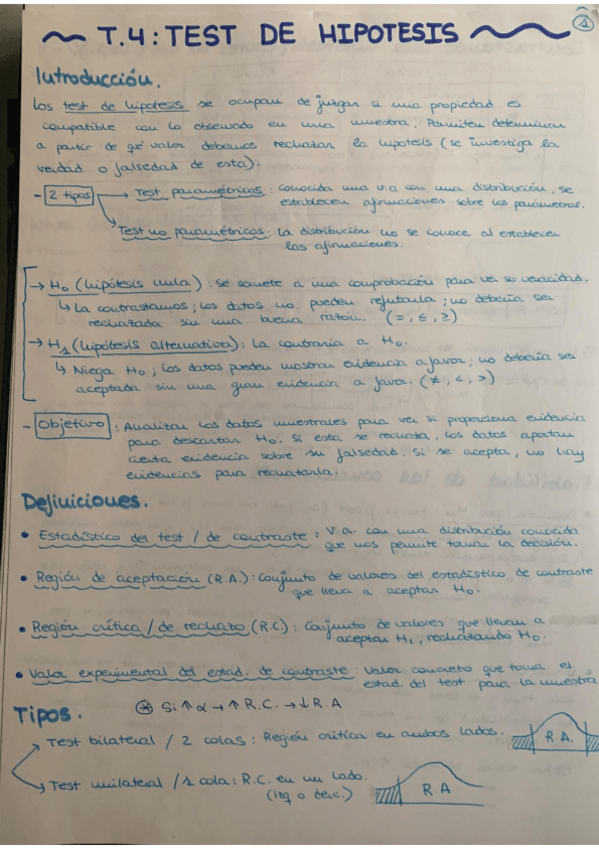 1
T.4: TEST DE HIPOTESIS
Introducción.
Los test de hipotesis se ocupan de juzgar si una propiedad es
compatible con lo observado en una muestra. Permiten determinar
a partir de qé valor debemos rechazar la hipotesis (se investiga la
verdad o falsedad de esta).
- 2 tipos → Test paramétricos: conocida una v.a con una distribución, se
establecen afirmaciones sobre los parámetros.
Test no paramétricos: La distribución no se conoce al establecer
las afirmaciones.
→ H0 (hipótesis nula): se somete a una comprobación para ver su veracidad.
↳ La contrastamos; los datos no pueden refutarla; no debería ser
rechazada sin una buena razón. (=, ≤, ≥)
→ H1 (hipótesis alternativa): La contraria a H0.
↳ Niega H0; los datos pueden mostrar evidencia a favor; no debería ser
aceptada sin una gran evidencia a favor. (≠, <, >)
- Objetivo: Analizar los datos muestrales para ver si proporciona evidencia
para descartar H0. Si esta se rechaza, los datos aportan
cierta evidencia sobre su falsedad. Si se acepta, no hay
evidencias para rechazarla.
Definiciones.
• Estadístico del test / de contraste: v.a. con una distribución conocida
que nos permite tomar la decisión.
• Región de aceptación (R.A.): Conjunto de valores del estadístico de contraste
que lleva a aceptar H0.
• Región crítica / de rechazo (R.C.): Conjunto de valores que llevan a
aceptar H1, rechazando H0.
• Valor experimental del estad. de contraste: Valor concreto que toma el
estad. del test para la muestra
Tipos. * Si ↑ α → ↑ R.C. → ↓ R.A
Test bilateral / 2 colas: Región crítica en ambos lados. R.A.
Test unilateral / 1 cola: R.C. en un lado. R.A
(izq o derc.)